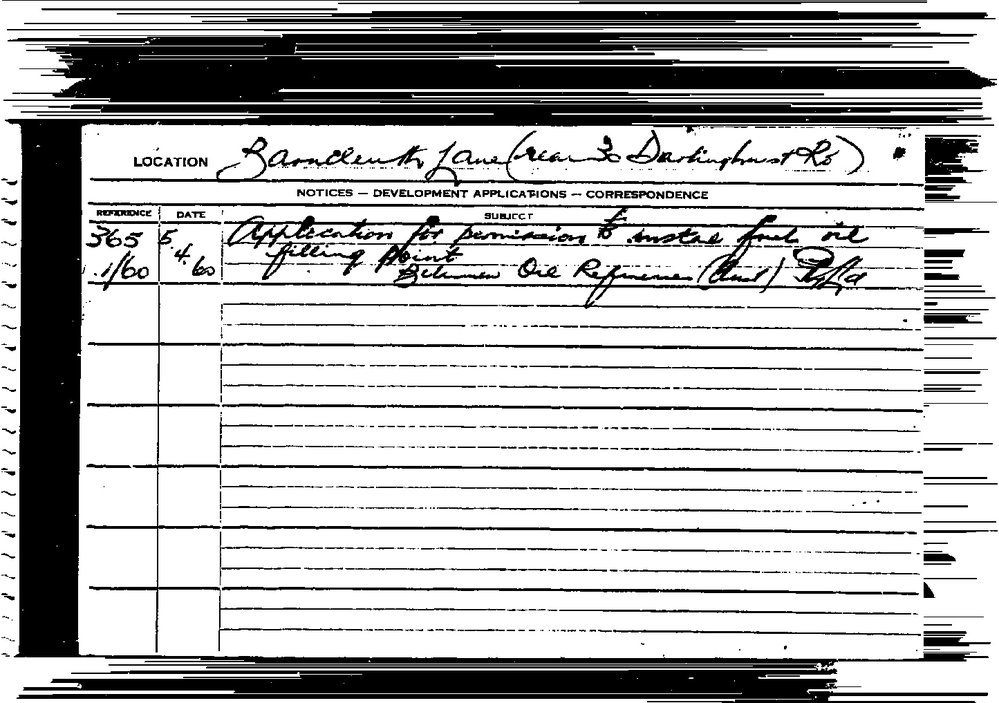 LOCATION Barncleuth Lane (rear 30 Darlinghurst Rd)
NOTICES — DEVELOPMENT APPLICATIONS — CORRESPONDENCE
REFERENCE DATE SUBJECT
365 5. Application for permission to instal fuel oil
.1/60 4.60 filling point
Oil Refineries (Aust) P/Ld